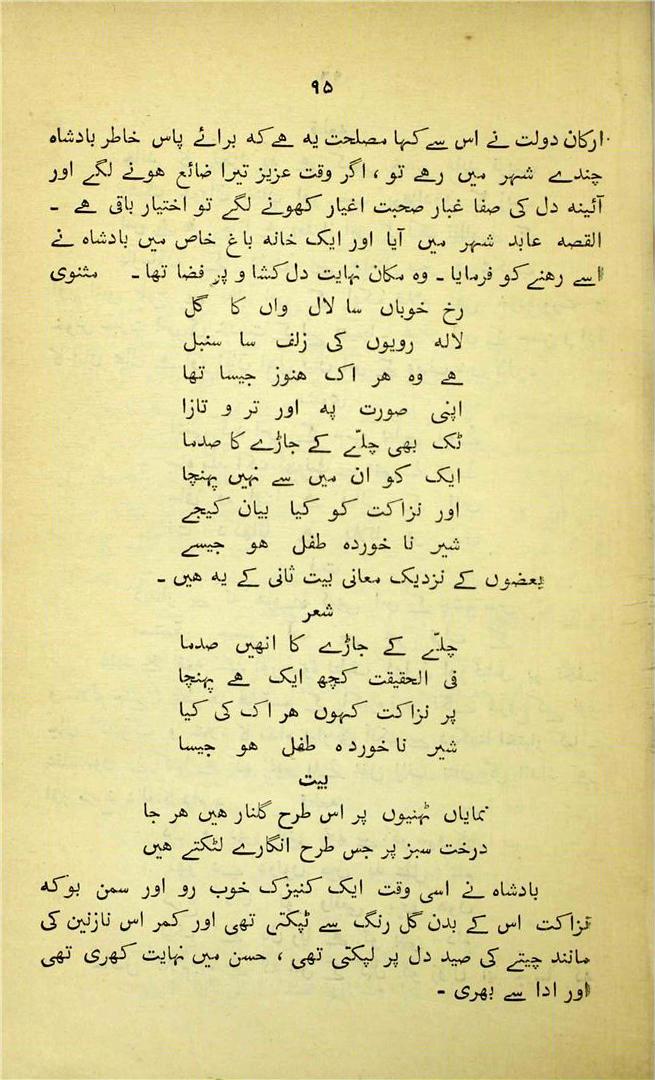 ۹۵
ارکان دولت نے اس سے کہا مصلحت یہ ہے کہ برائے پاس خاطر بادشاہ
چندے شہر میں رہے تو ، اگر وقت عزیز تیرا ضائع ہونے لگے اور
آئینہ دل کی صفا غبار صحبت اغیار کھونے لگے تو اختیار باقی ہے ۔
القصہ عابد شہر میں آیا اور ایک خانہ باغ خاص میں بادشاہ نے
اسے رہنے کو فرمایا ۔ وہ مکان نہایت دل کشا و پر فضا تھا ۔ مثنوی
رخ خوباں سا لال واں کا گل
لالہ رویوں کی زلف سا سنبل
ہے وہ ہر اک ہنوز جیسا تھا
اپنی صورت پہ اور تر و تازا
ٹک بھی چلّے کے جاڑے کا صدما
ایک کو ان میں سے نہیں پہنچا
اور نزاکت کو کیا بیان کیجے
شیر نا خوردہ طفل ہو جیسے
بعضوں کے نزدیک معانی بیت ثانی کے یہ ہیں ۔
شعر
چلّے کے جاڑے کا انھیں صدما
فی الحقیقت کچھ ایک ہے پہنچا
پر نزاکت کہوں ہر اک کی کیا
شیر نا خوردہ طفل ہو جیسا
بیت
نمایاں ٹہنیوں پر اس طرح گلنار ہیں ہر جا
درخت سبز پر جس طرح انگارے لٹکتے ہیں
بادشاہ نے اسی وقت ایک کنیزک خوب رو اور سمن بو کہ
نزاکت اس کے بدن گل رنگ سے ٹپکتی تھی اور کمر اس نازنین کی
مانند چیتے کی صید دل پر لپکتی تھی ، حسن میں نہایت کھری تھی
اور ادا سے بھری ۔